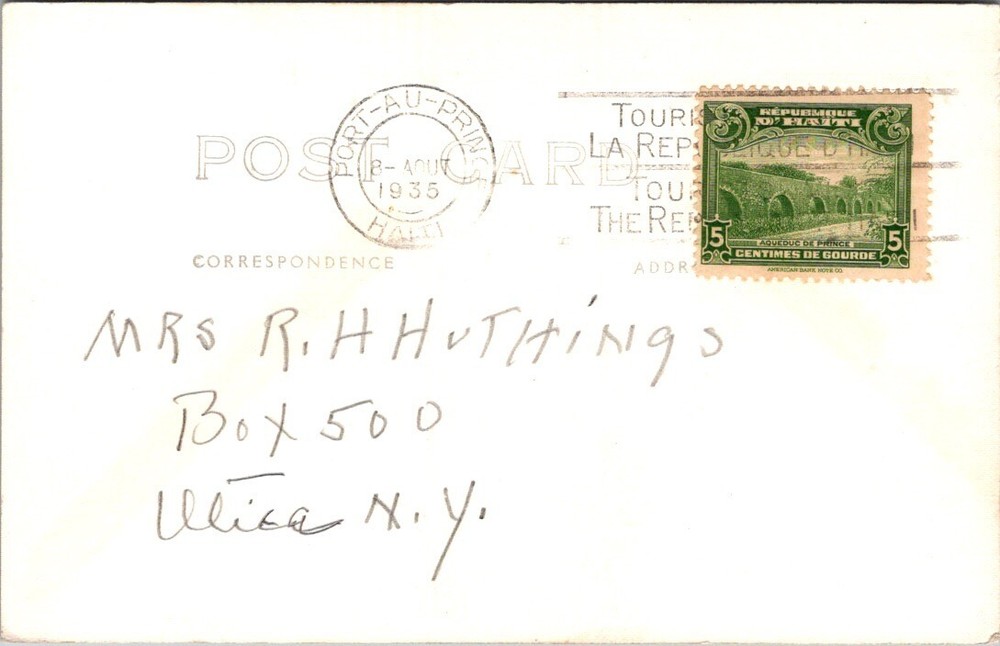 PORT-AU-PRINCE
8-AOUT
1935
HAITI
TOURI
LA REP
TOUR
THE REP
POST CARD
RÉPUBLIQUE
D'HAITI
5 5
AQUEDUC DE PRINCE
CENTIMES DE GOURDE
AMERICAN BANK NOTE CO.
CORRESPONDENCE
ADDR
MRS R. H HuTHiNgS
Box 500
Utica N.Y.